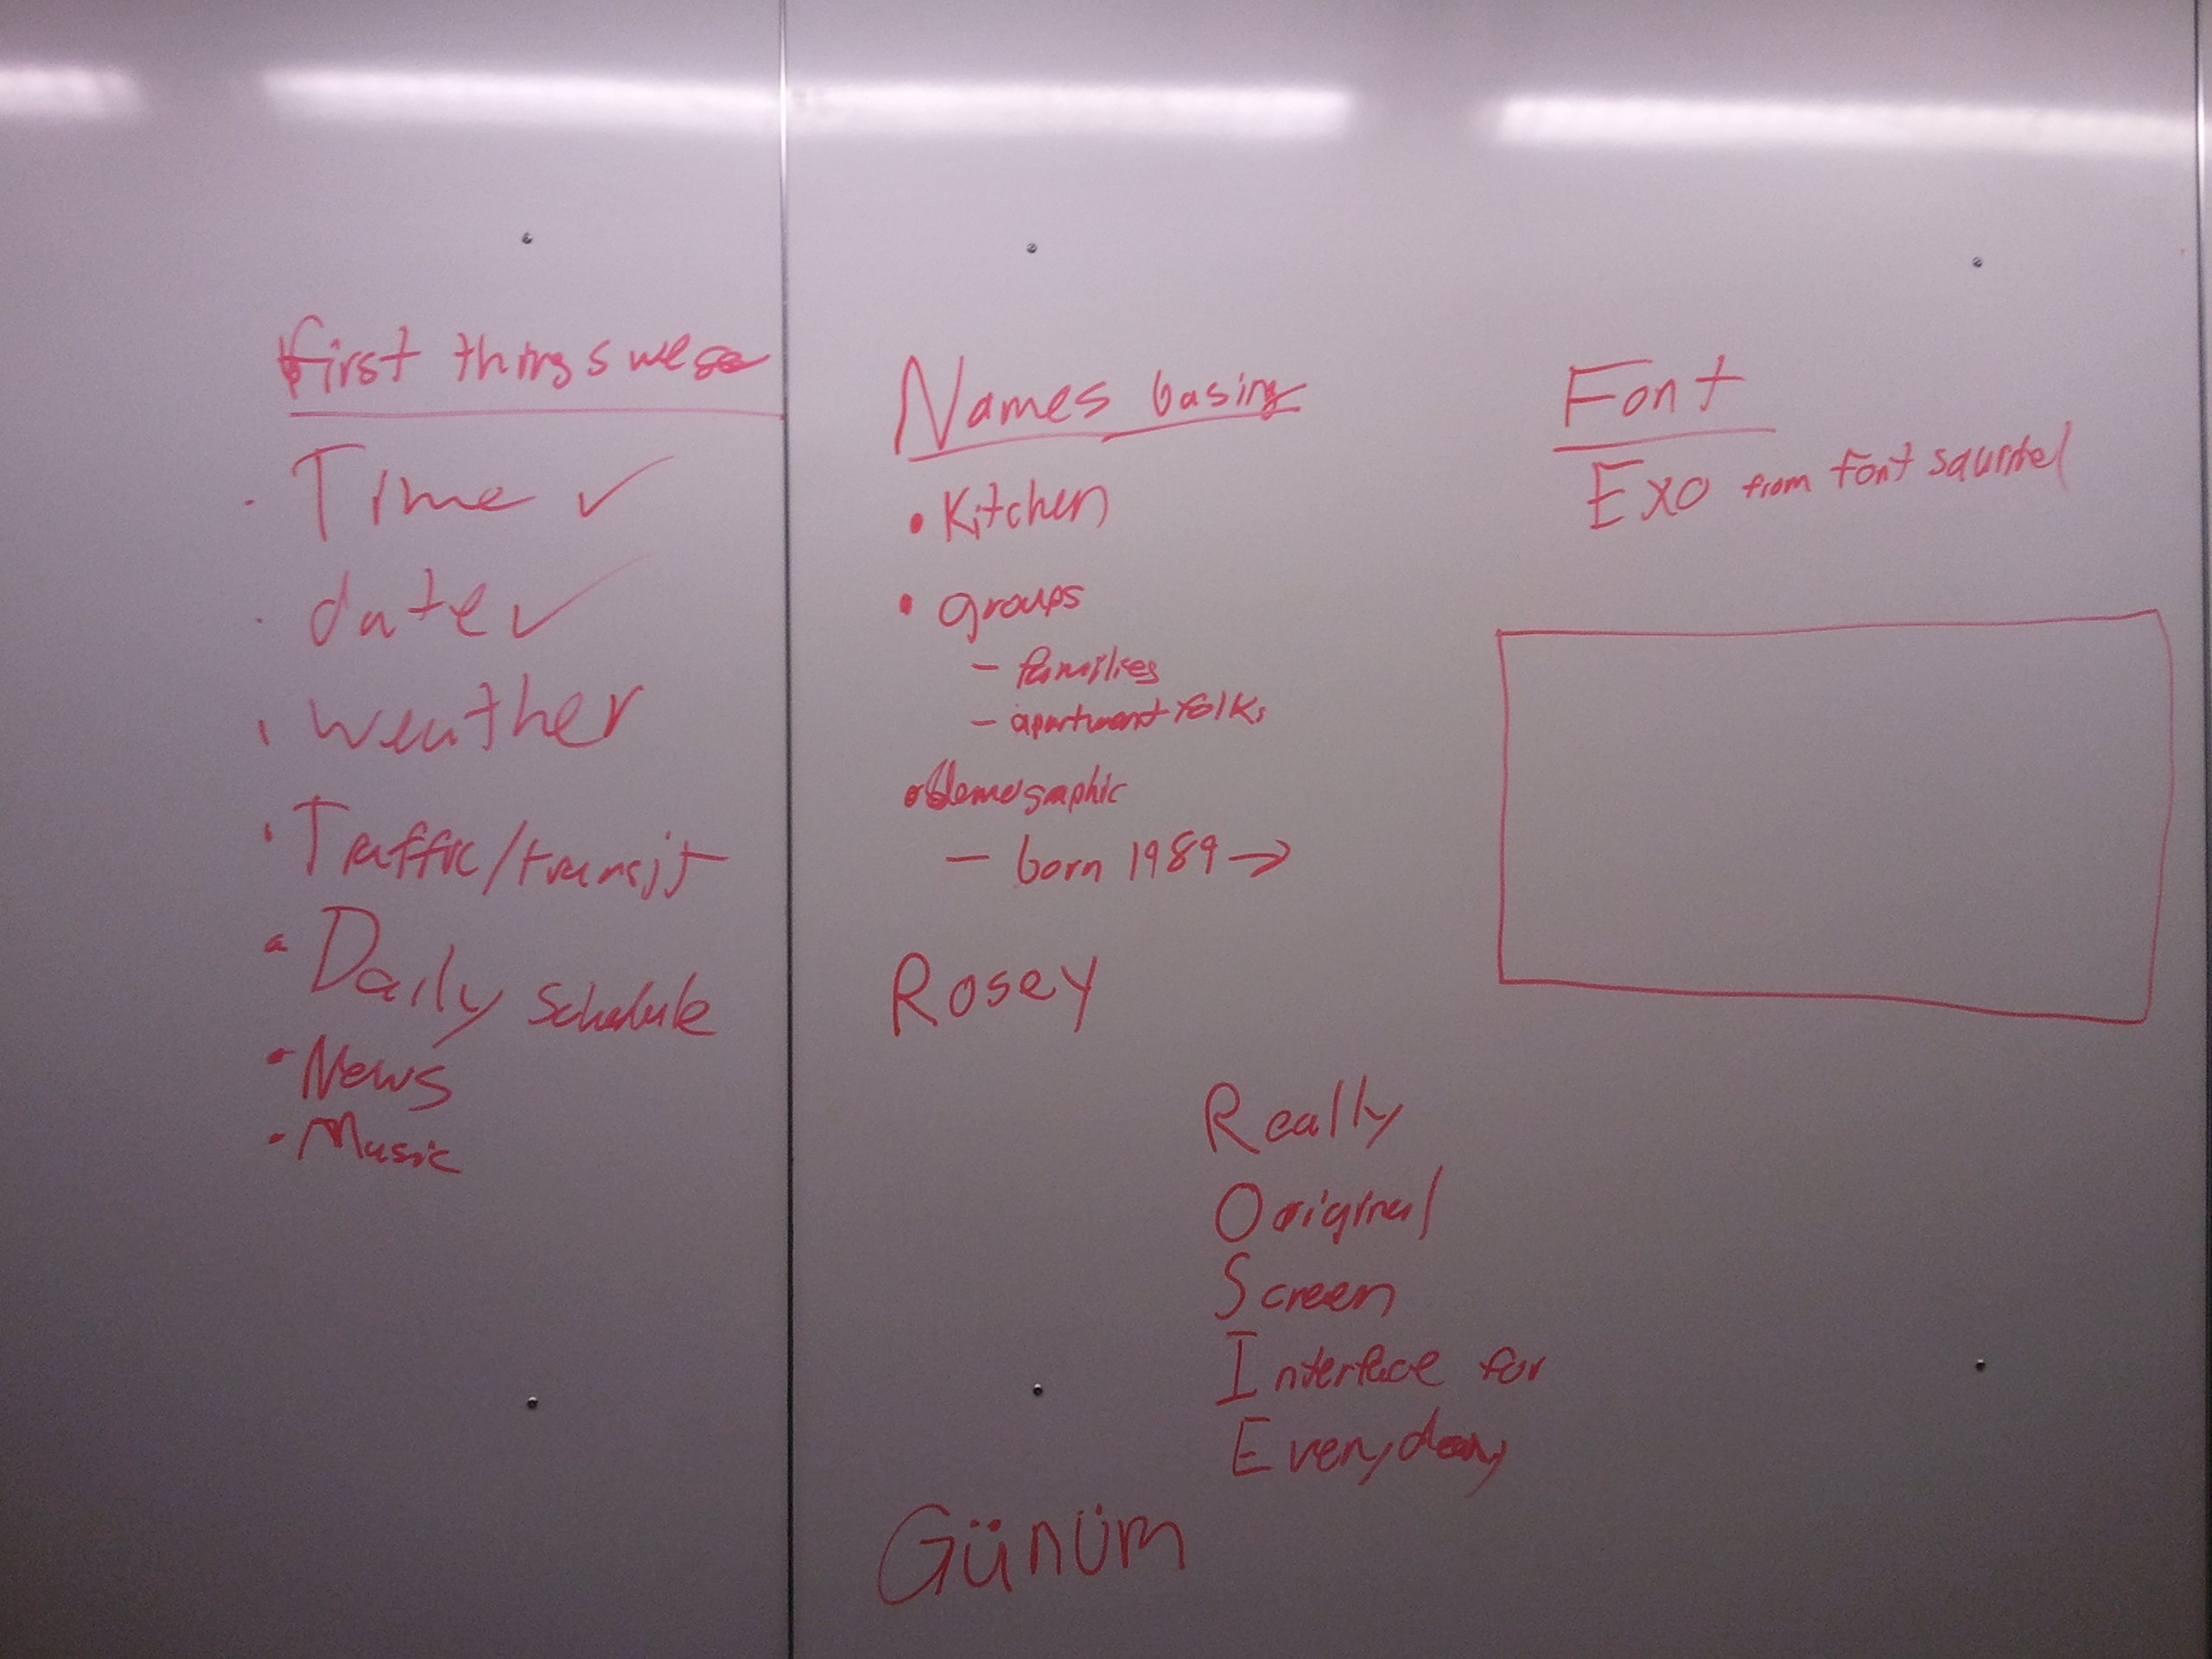 first things we see
· Time ✓
· date ✓
· weather
· Traffic/transit
· Daily schedule
· News
· Music
Names basing
• Kitchen
• groups
– families
– apartment folks
• demographic
– born 1989 →
Rosey
Really
Original
Screen
Interface for
Everyday
Günüm
Font
Exo from font squirrel